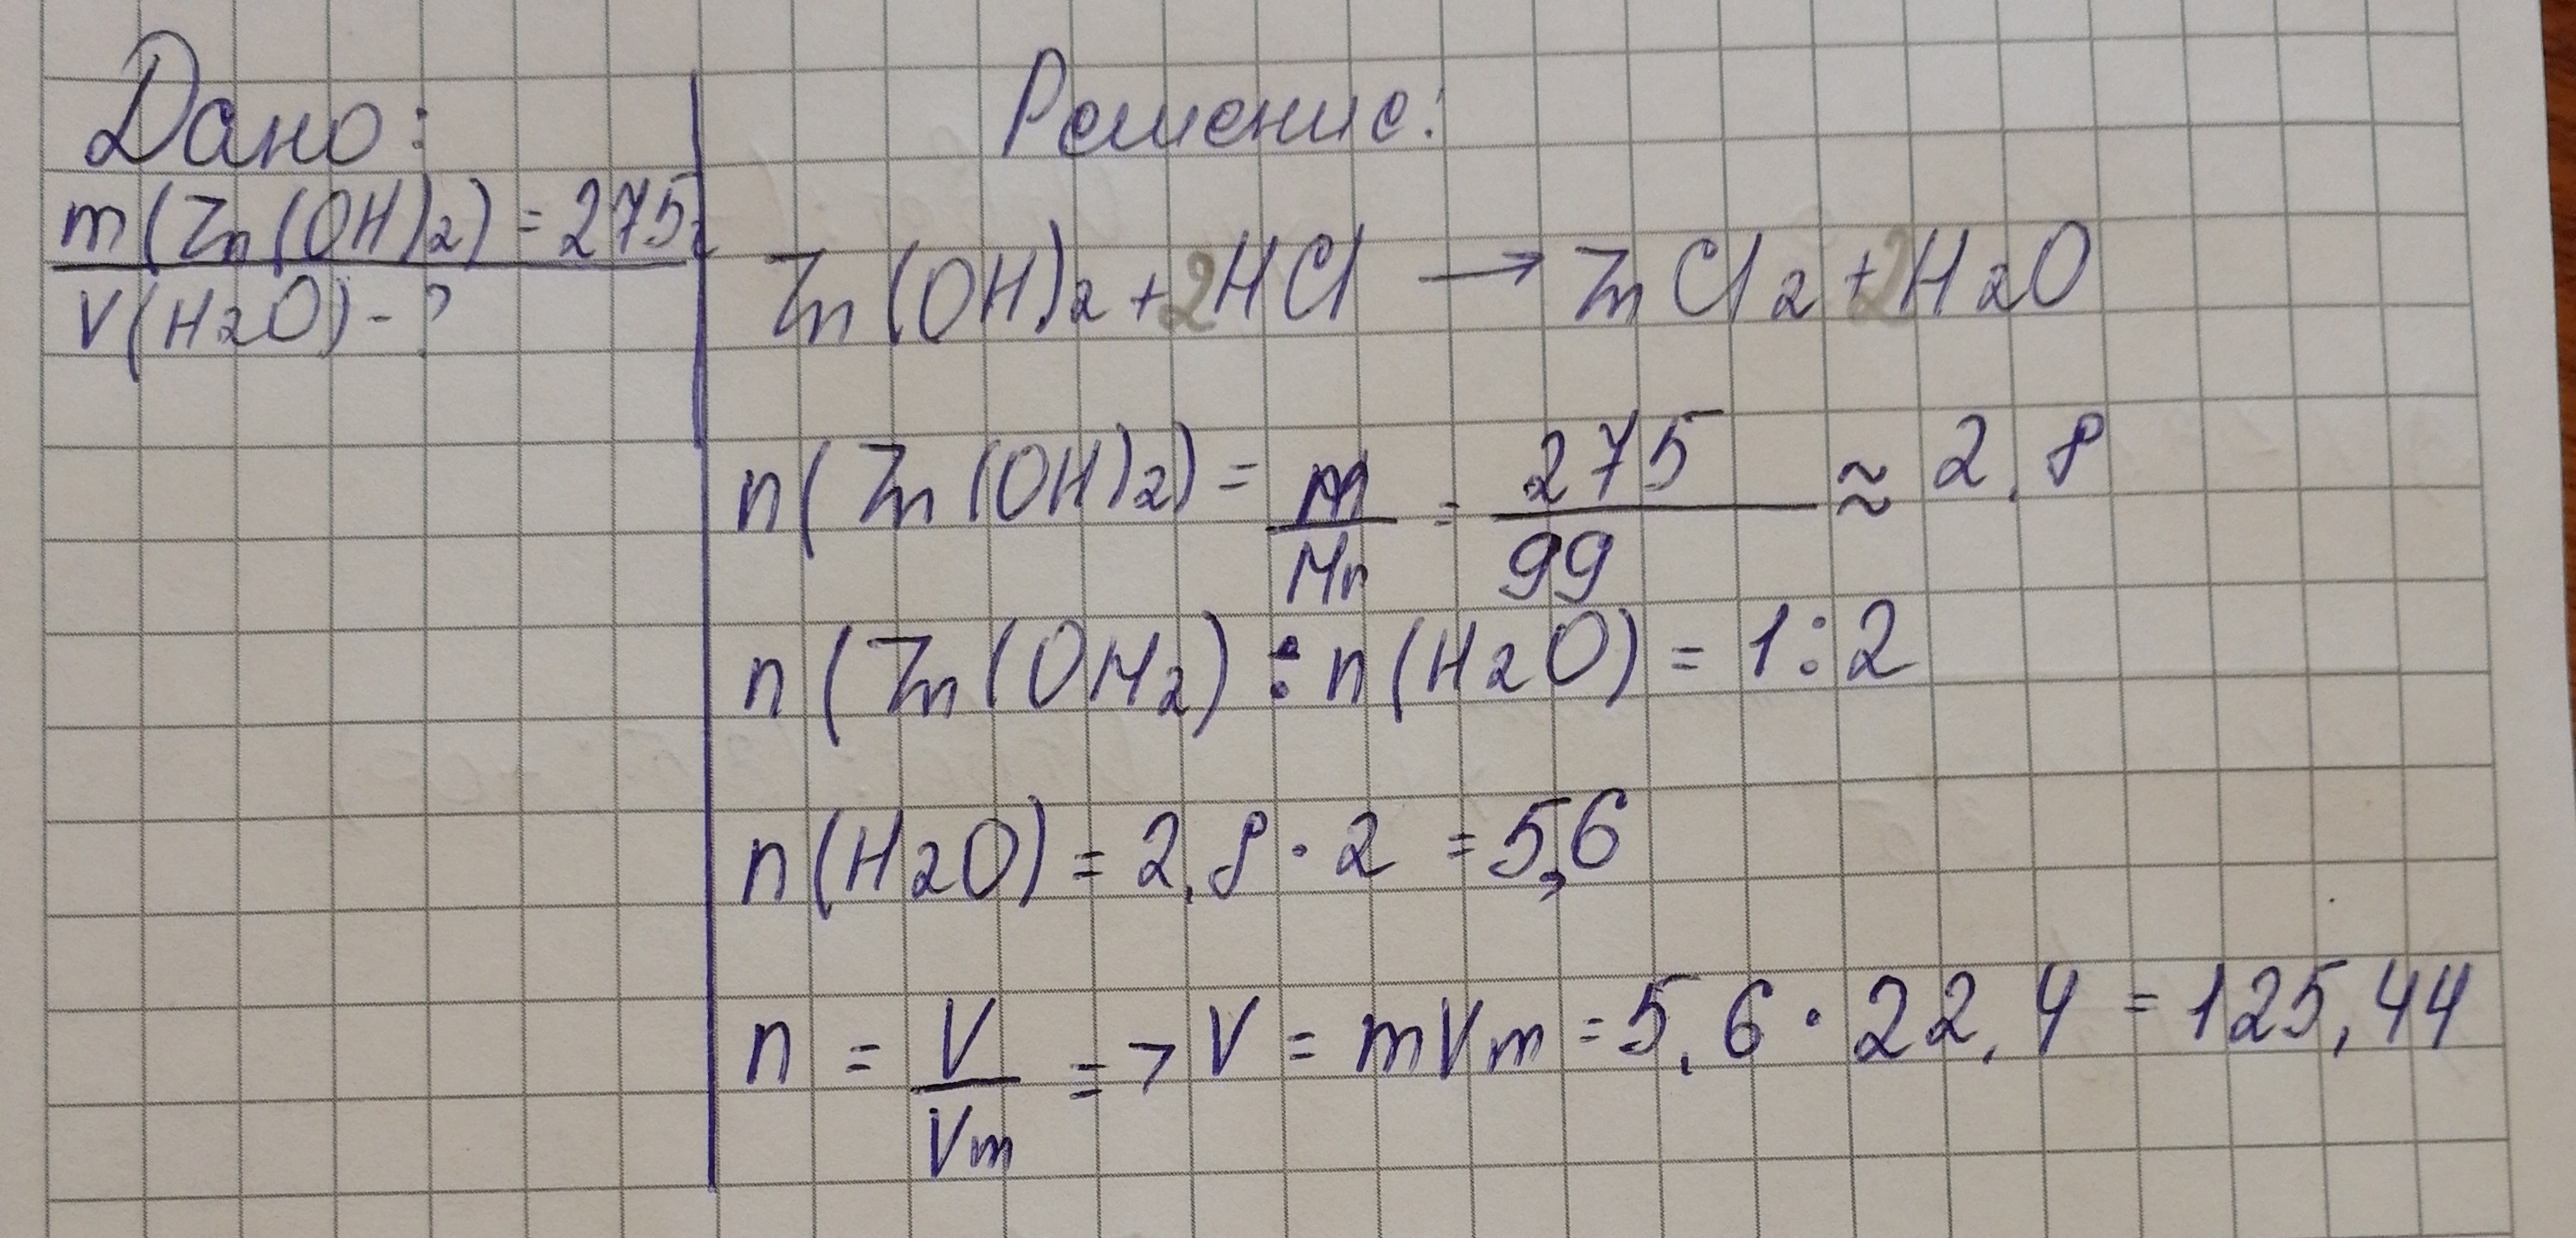 Дано:
m(Zn(OH)2) = 275г
V(H2O) - ?
Решение:
Zn(OH)2 + 2HCl → ZnCl2 + 2H2O
n(Zn(OH)2) = m/Mr = 275/99 ≈ 2,8
n(Zn(OH2) : n(H2O) = 1:2
n(H2O) = 2,8 · 2 = 5,6
n = V/Vm => V = mVm = 5,6 · 22,4 = 125,44